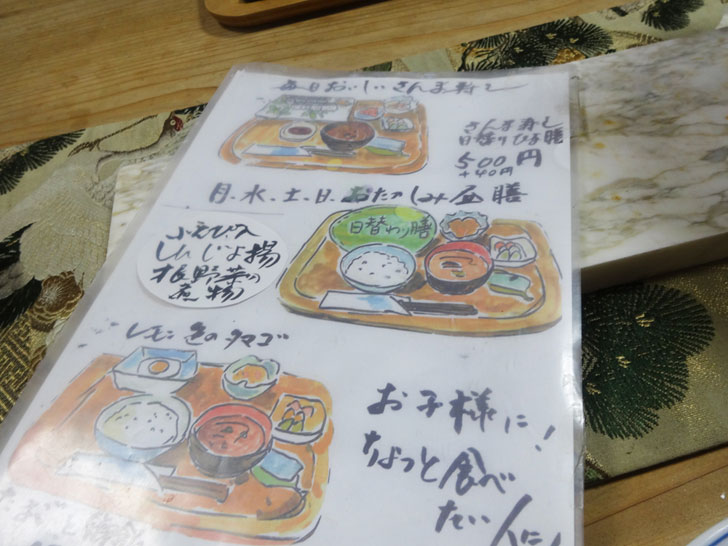 毎日おいしいさんま寿し
さんま寿し
日替りひる膳
500円
+40円
月、水、土、日、おたのしみ昼膳
日替わり膳
しんじょ揚
根野菜の
煮物
レモン色のタマゴ
お子様に!
ちょっと食べ
たい人に!